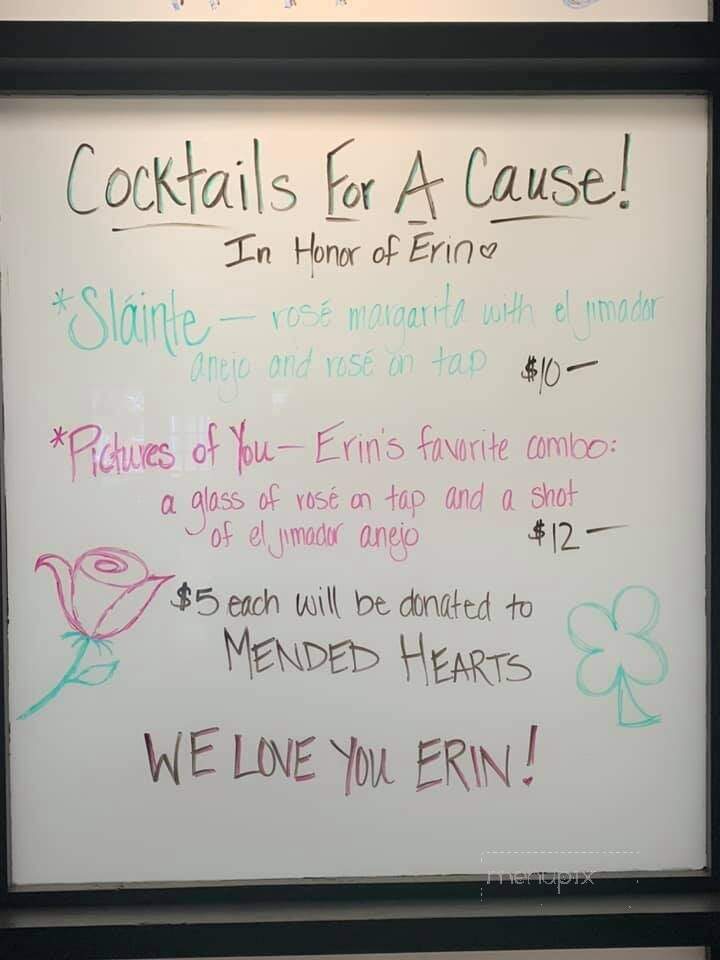 Cocktails For A Cause!
In Honor of Erin♡
*Sláinte — rosé margarita with el jimador
anejo and rosé on tap $10—
*Pictures of You— Erin's favorite combo:
a glass of rosé on tap and a shot
of el jimador anejo $12—
$5 each will be donated to
MENDED HEARTS
WE LOVE YOU ERIN!
menupix